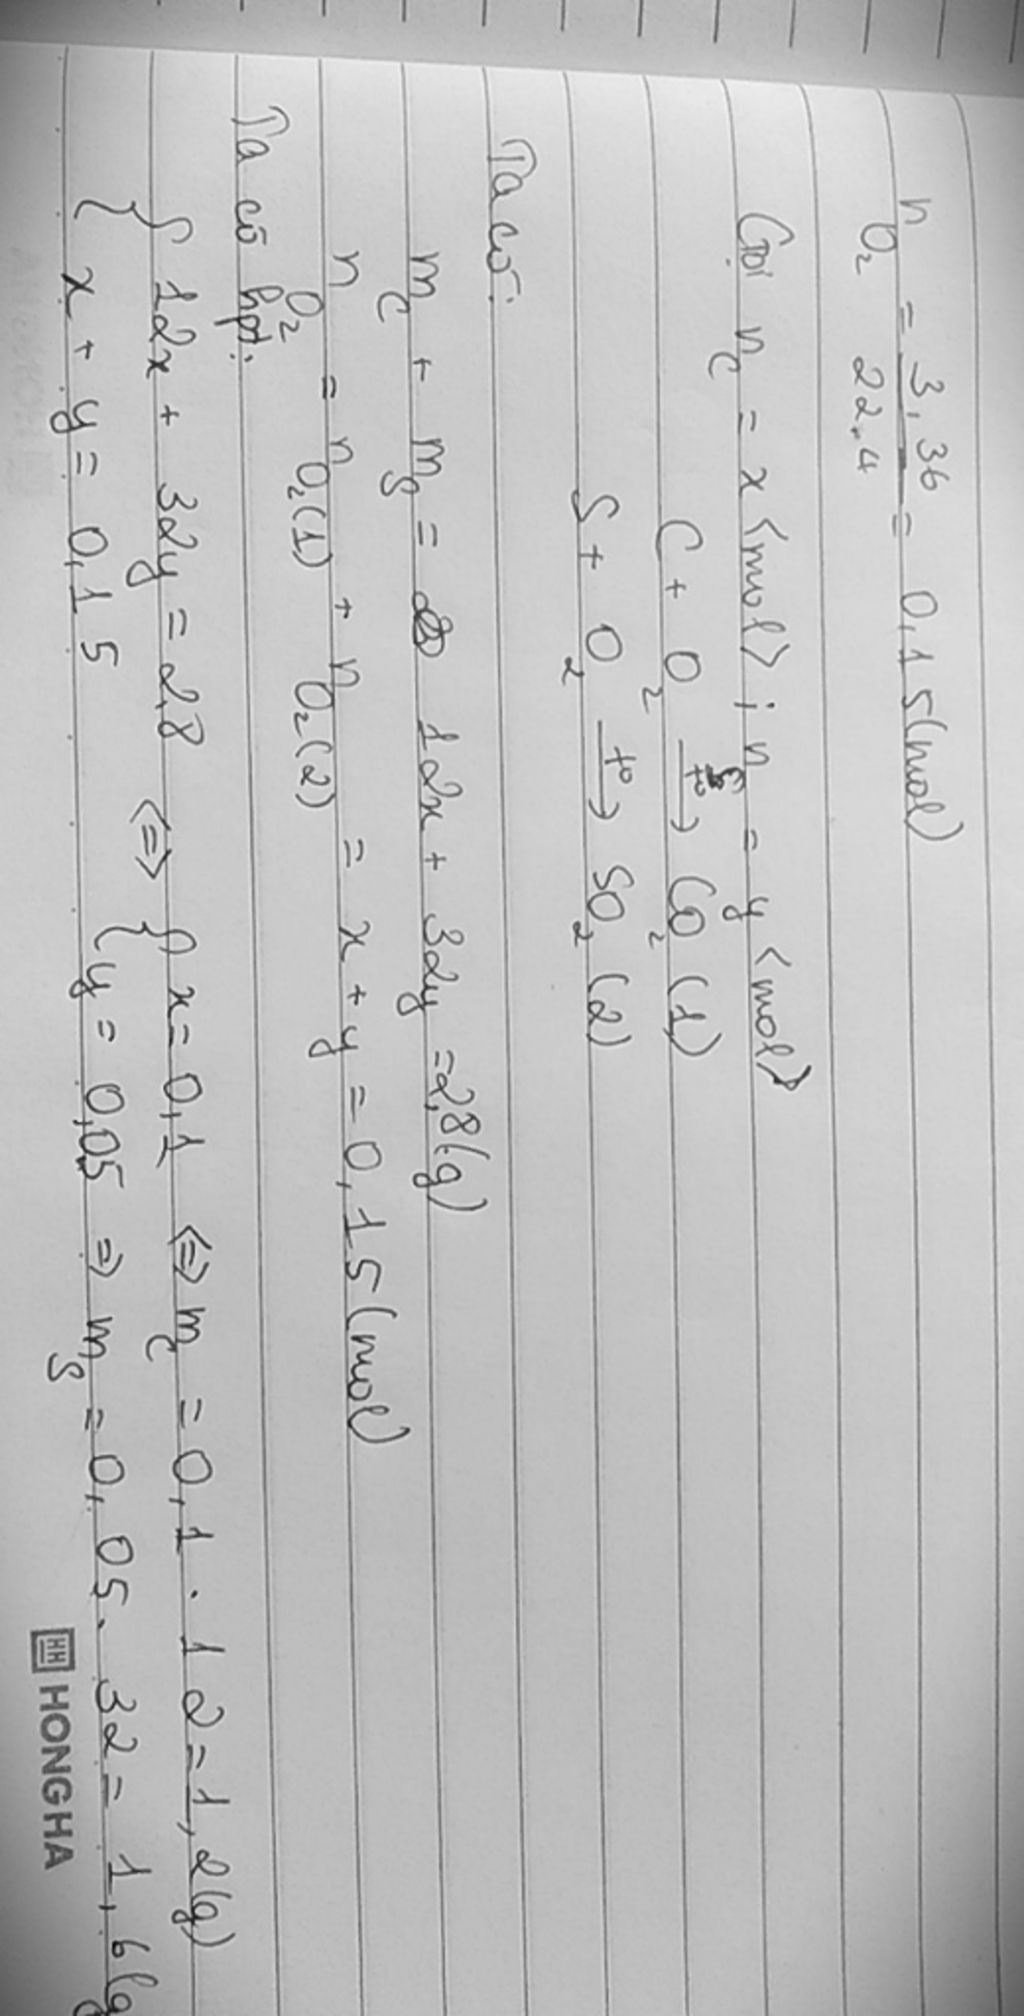 n O₂ = 3,36 / 22,4 = 0,15 (mol)
Gọi n C = x <mol> ; n S = y <mol>
C + O₂ t° → CO₂ (1)
S + O₂ t° → SO₂ (2)
Ta có:
m C + m S = 12x + 32y = 2,8 (g)
n O₂ = n O₂(1) + n O₂(2) = x + y = 0,15 (mol)
Ta có hpt:
{ 12x + 32y = 2,8 <=> { x = 0,1 <=> m C = 0,1 . 12 = 1,2 (g)
{ x + y = 0,15 { y = 0,05 => m S = 0,05 . 32 = 1,6 (g
HH HONG HA